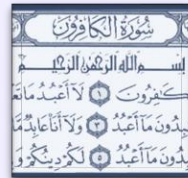 سُورَةُ الْكَافِرُونَ
بِسْمِ اللَّهِ الرَّحْمَٰنِ الرَّحِيمِ
كَٰفِرُونَ ١ لَآ أَعْبُدُ مَا
بِدُونَ مَآ أَعْبُدُ ٣ وَلَآ أَنَا۠ عَابِدٌ مَّا
بِدُونَ مَآ أَعْبُدُ ٥ لَكُمْ دِينُكُمْ وَ